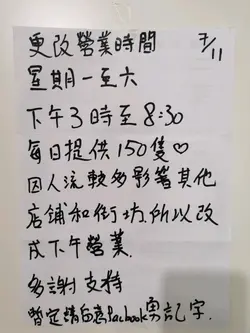 更改營業時間 7/11
星期一至六
下午3時至8:30
每日提供150隻♡
因人流較多影響其他
店舖和街坊.所以改
成下午營業.
多謝支持
暫定請留意facbook勇記字.